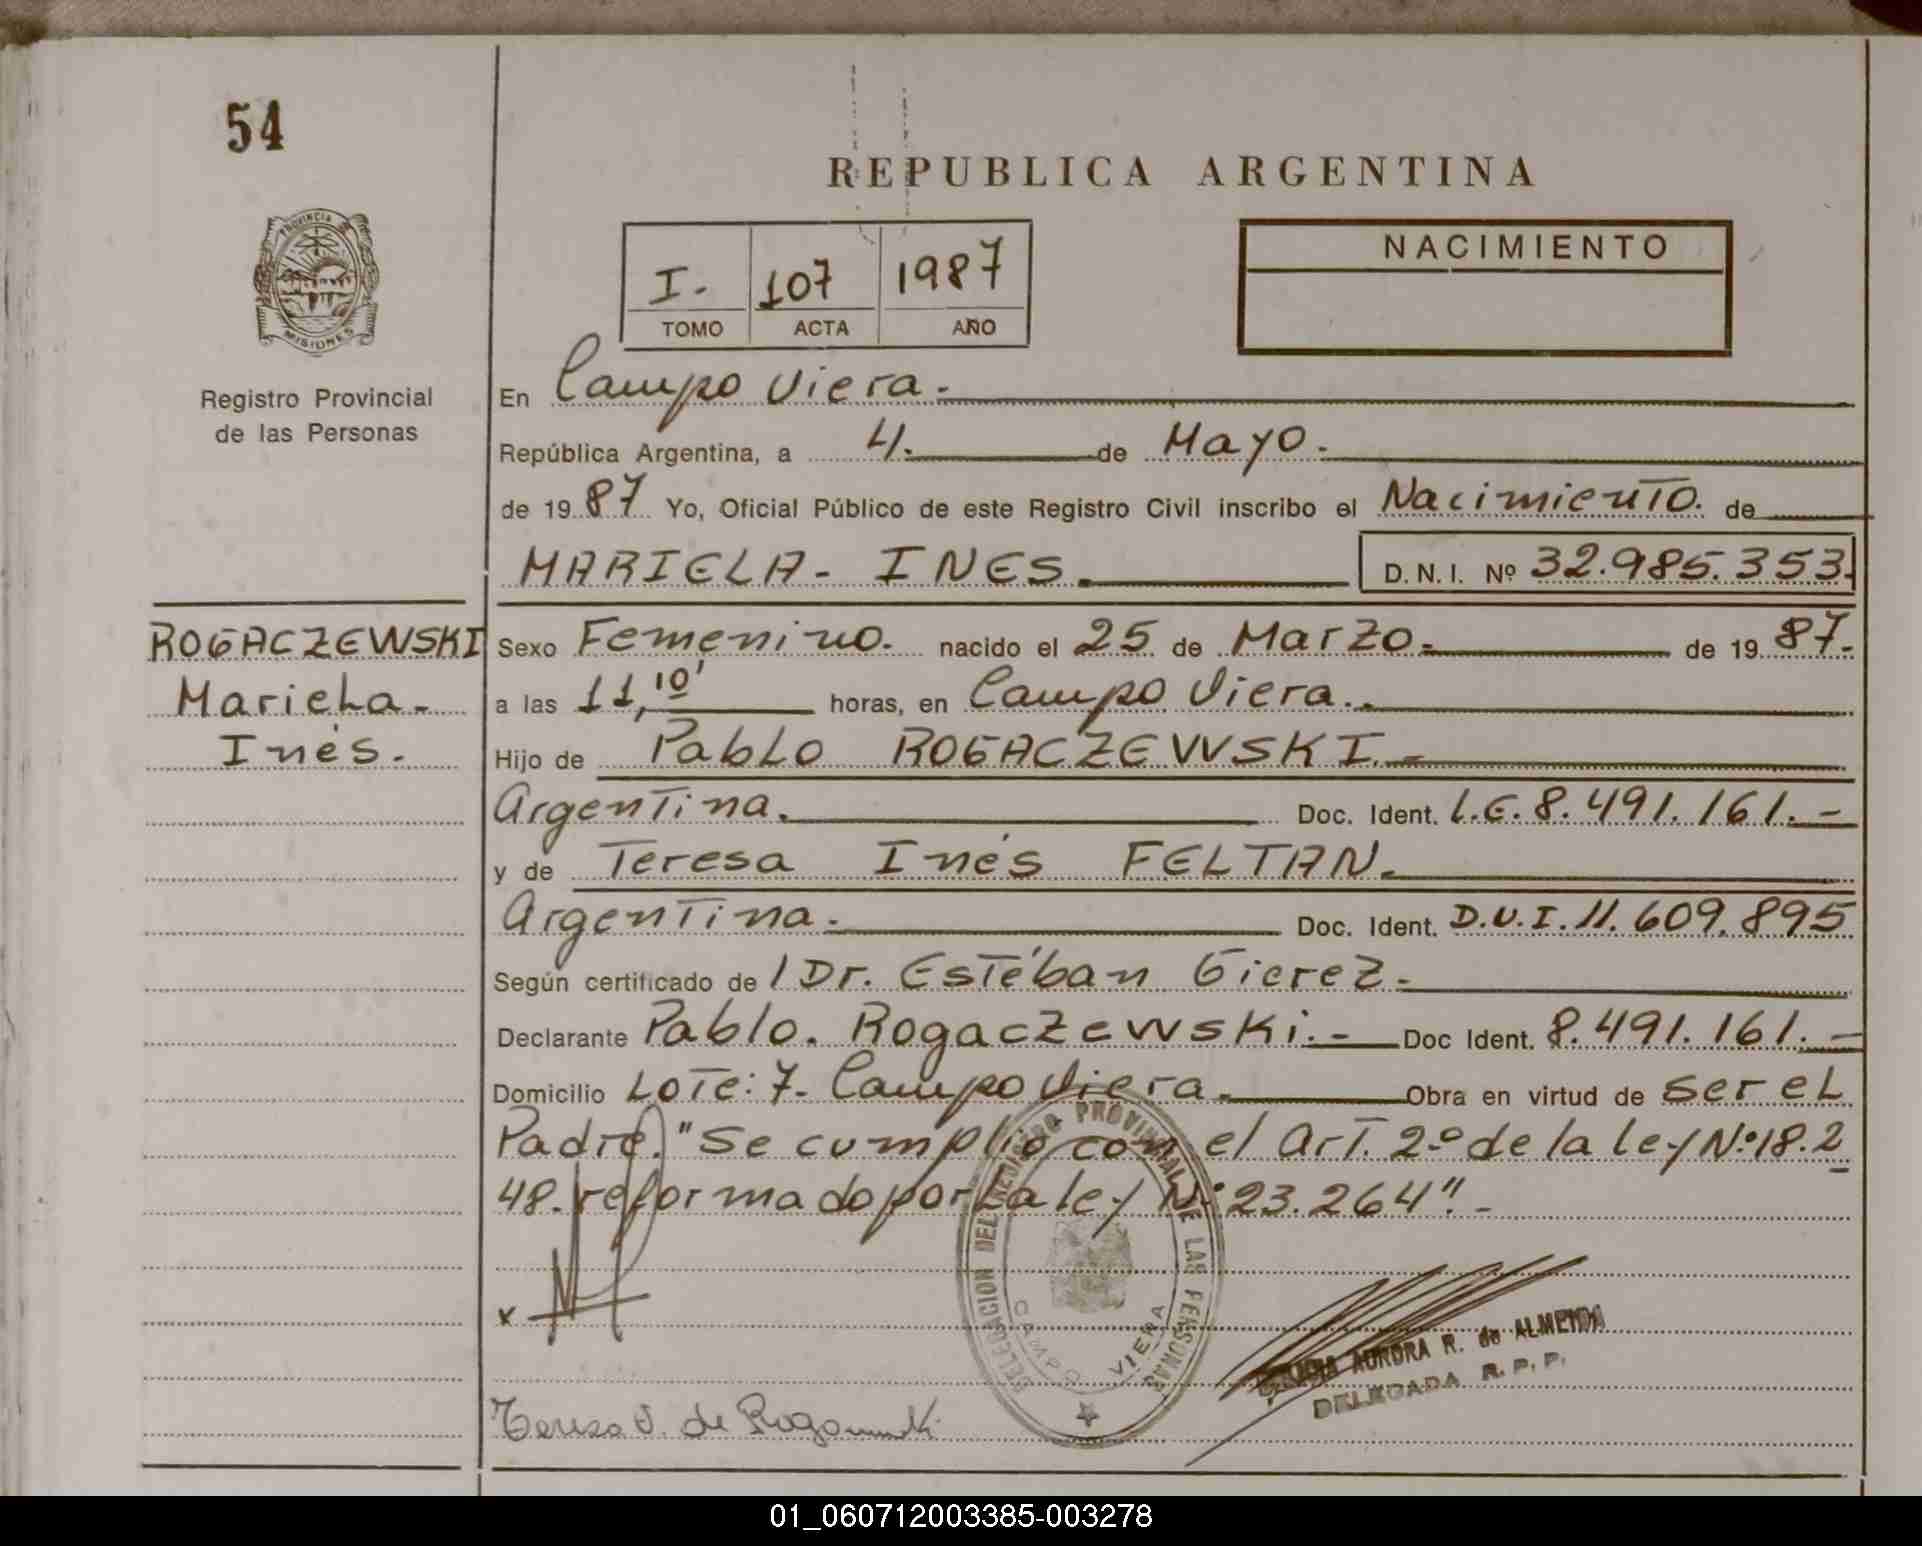 54
REPUBLICA ARGENTINA
PROVINCIA
MISIONES
Registro Provincial
de las Personas
I. 107 1987
TOMO ACTA AÑO
NACIMIENTO
En Campo Viera.
República Argentina, a 4. de Mayo.
de 1987 Yo, Oficial Público de este Registro Civil inscribo el Nacimiento. de
MARIELA - INES. D.N.I. Nº 32.985.353.
ROGACZEWSKI
Mariela.
Inés.
Sexo Femenino. nacido el 25 de Marzo. de 1987.
a las 11,10' horas, en Campo Viera.
Hijo de Pablo ROGACZEWSKI.-
Argentina. Doc. Ident. L.E. 8.491.161.-
y de Teresa Inés FELTAN.
Argentina. Doc. Ident. D.U.I. 11.609.895
Según certificado de / Dr. Estéban Gierez.
Declarante Pablo. Rogaczewski.- Doc Ident. 8.491.161.-
Domicilio Lote: 7. Campo Viera. Obra en virtud de ser el
Padre. "Se cumplió con el Art. 2º de la ley Nº 18.2
48. reformado por la ley Nº 23.264".-
DELEGACION DEL REGISTRO PROVINCIAL DE LAS PERSONAS
CAMPO VIERA
x
AURORA R. de ALMEIDA
DELEGADA R.P.P.
Teresa de
01_060712003385-003278